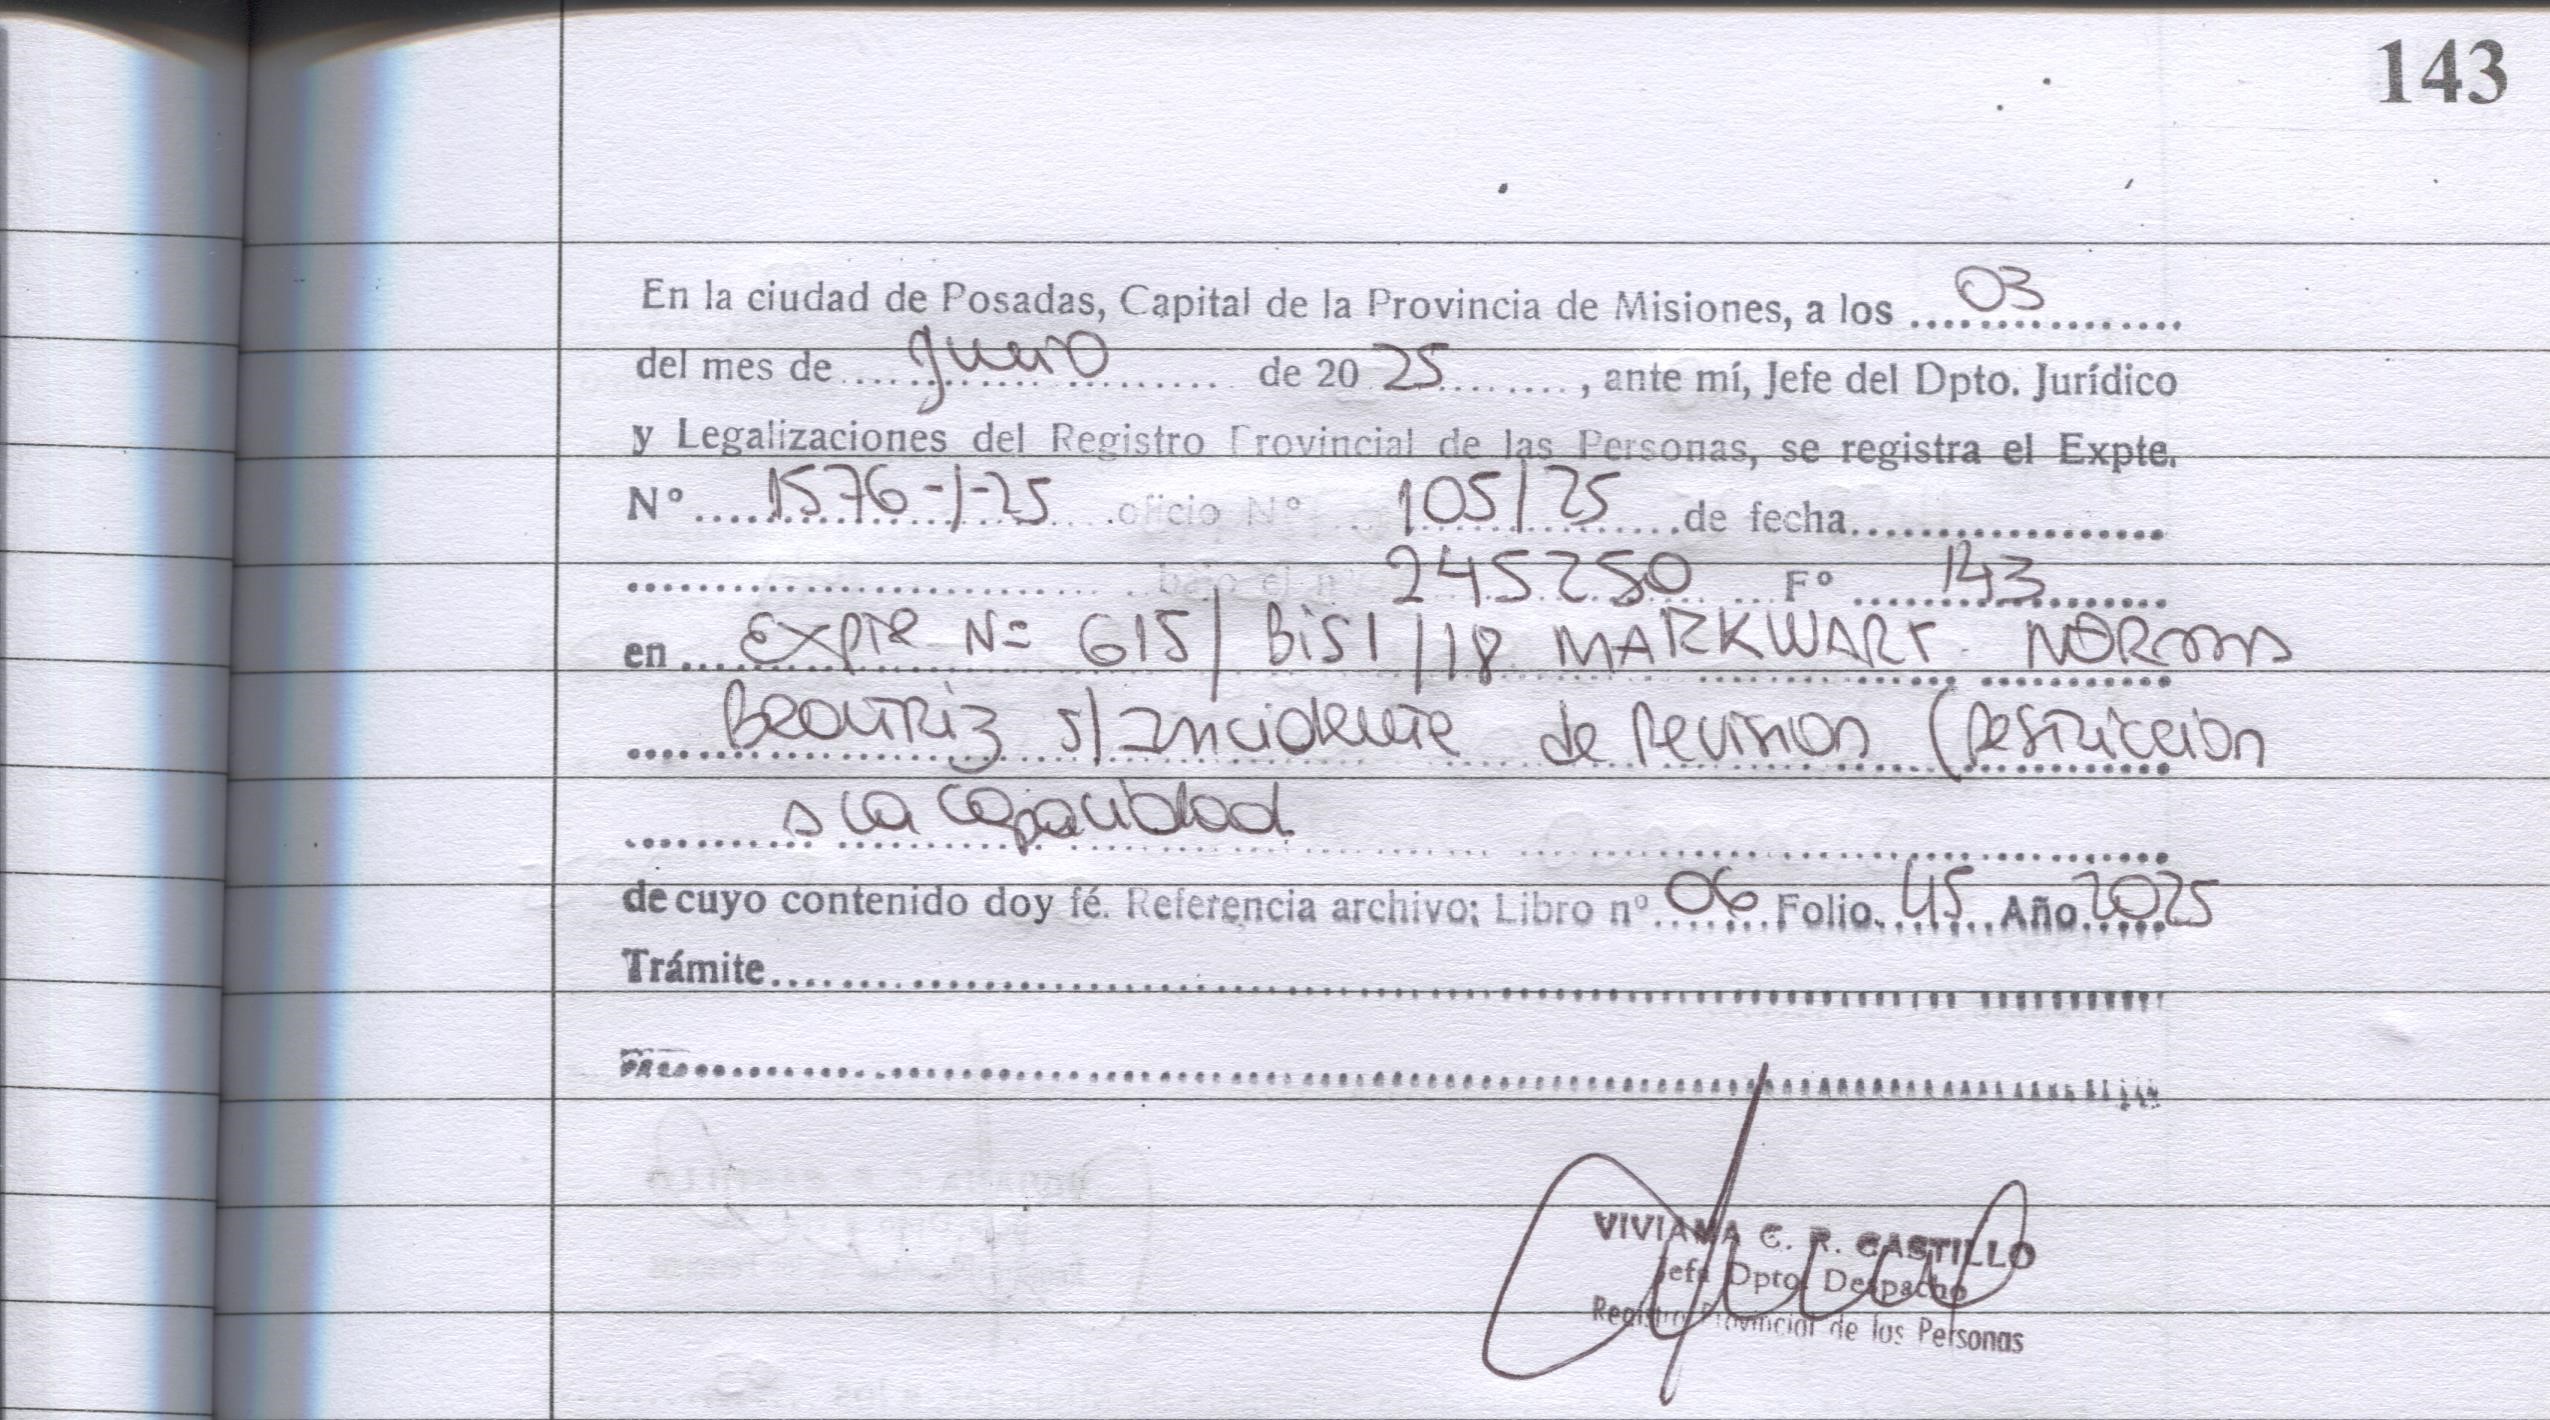 143
En la ciudad de Posadas, Capital de la Provincia de Misiones, a los 03
del mes de Junio de 20 25, ante mí, Jefe del Dpto. Jurídico
y Legalizaciones del Registro Provincial de las Personas, se registra el Expte.
N° 1576-1-25 oficio N° 105/25 de fecha
245250 F° 143
en Expte N= 615/ BIS1/18 MARKWART NORMA
Beatriz s/Incidente de Revision (Restriccion
A la capacidad
de cuyo contenido doy fé. Referencia archivo: Libro n° 06 Folio 45 Año 2025
Trámite
VIVIANA C. R. CASTILLO
Jefa Dpto. Despacho
Registro Provincial de las Personas